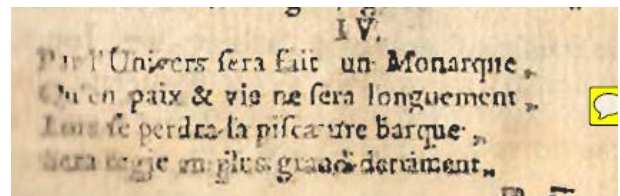 IV.
Par l'Univers sera fait un Monarque,
Qu'en paix & vie ne sera longuement,
Lors se perdra la piscature barque,
Sera regie en plus grand detriment,